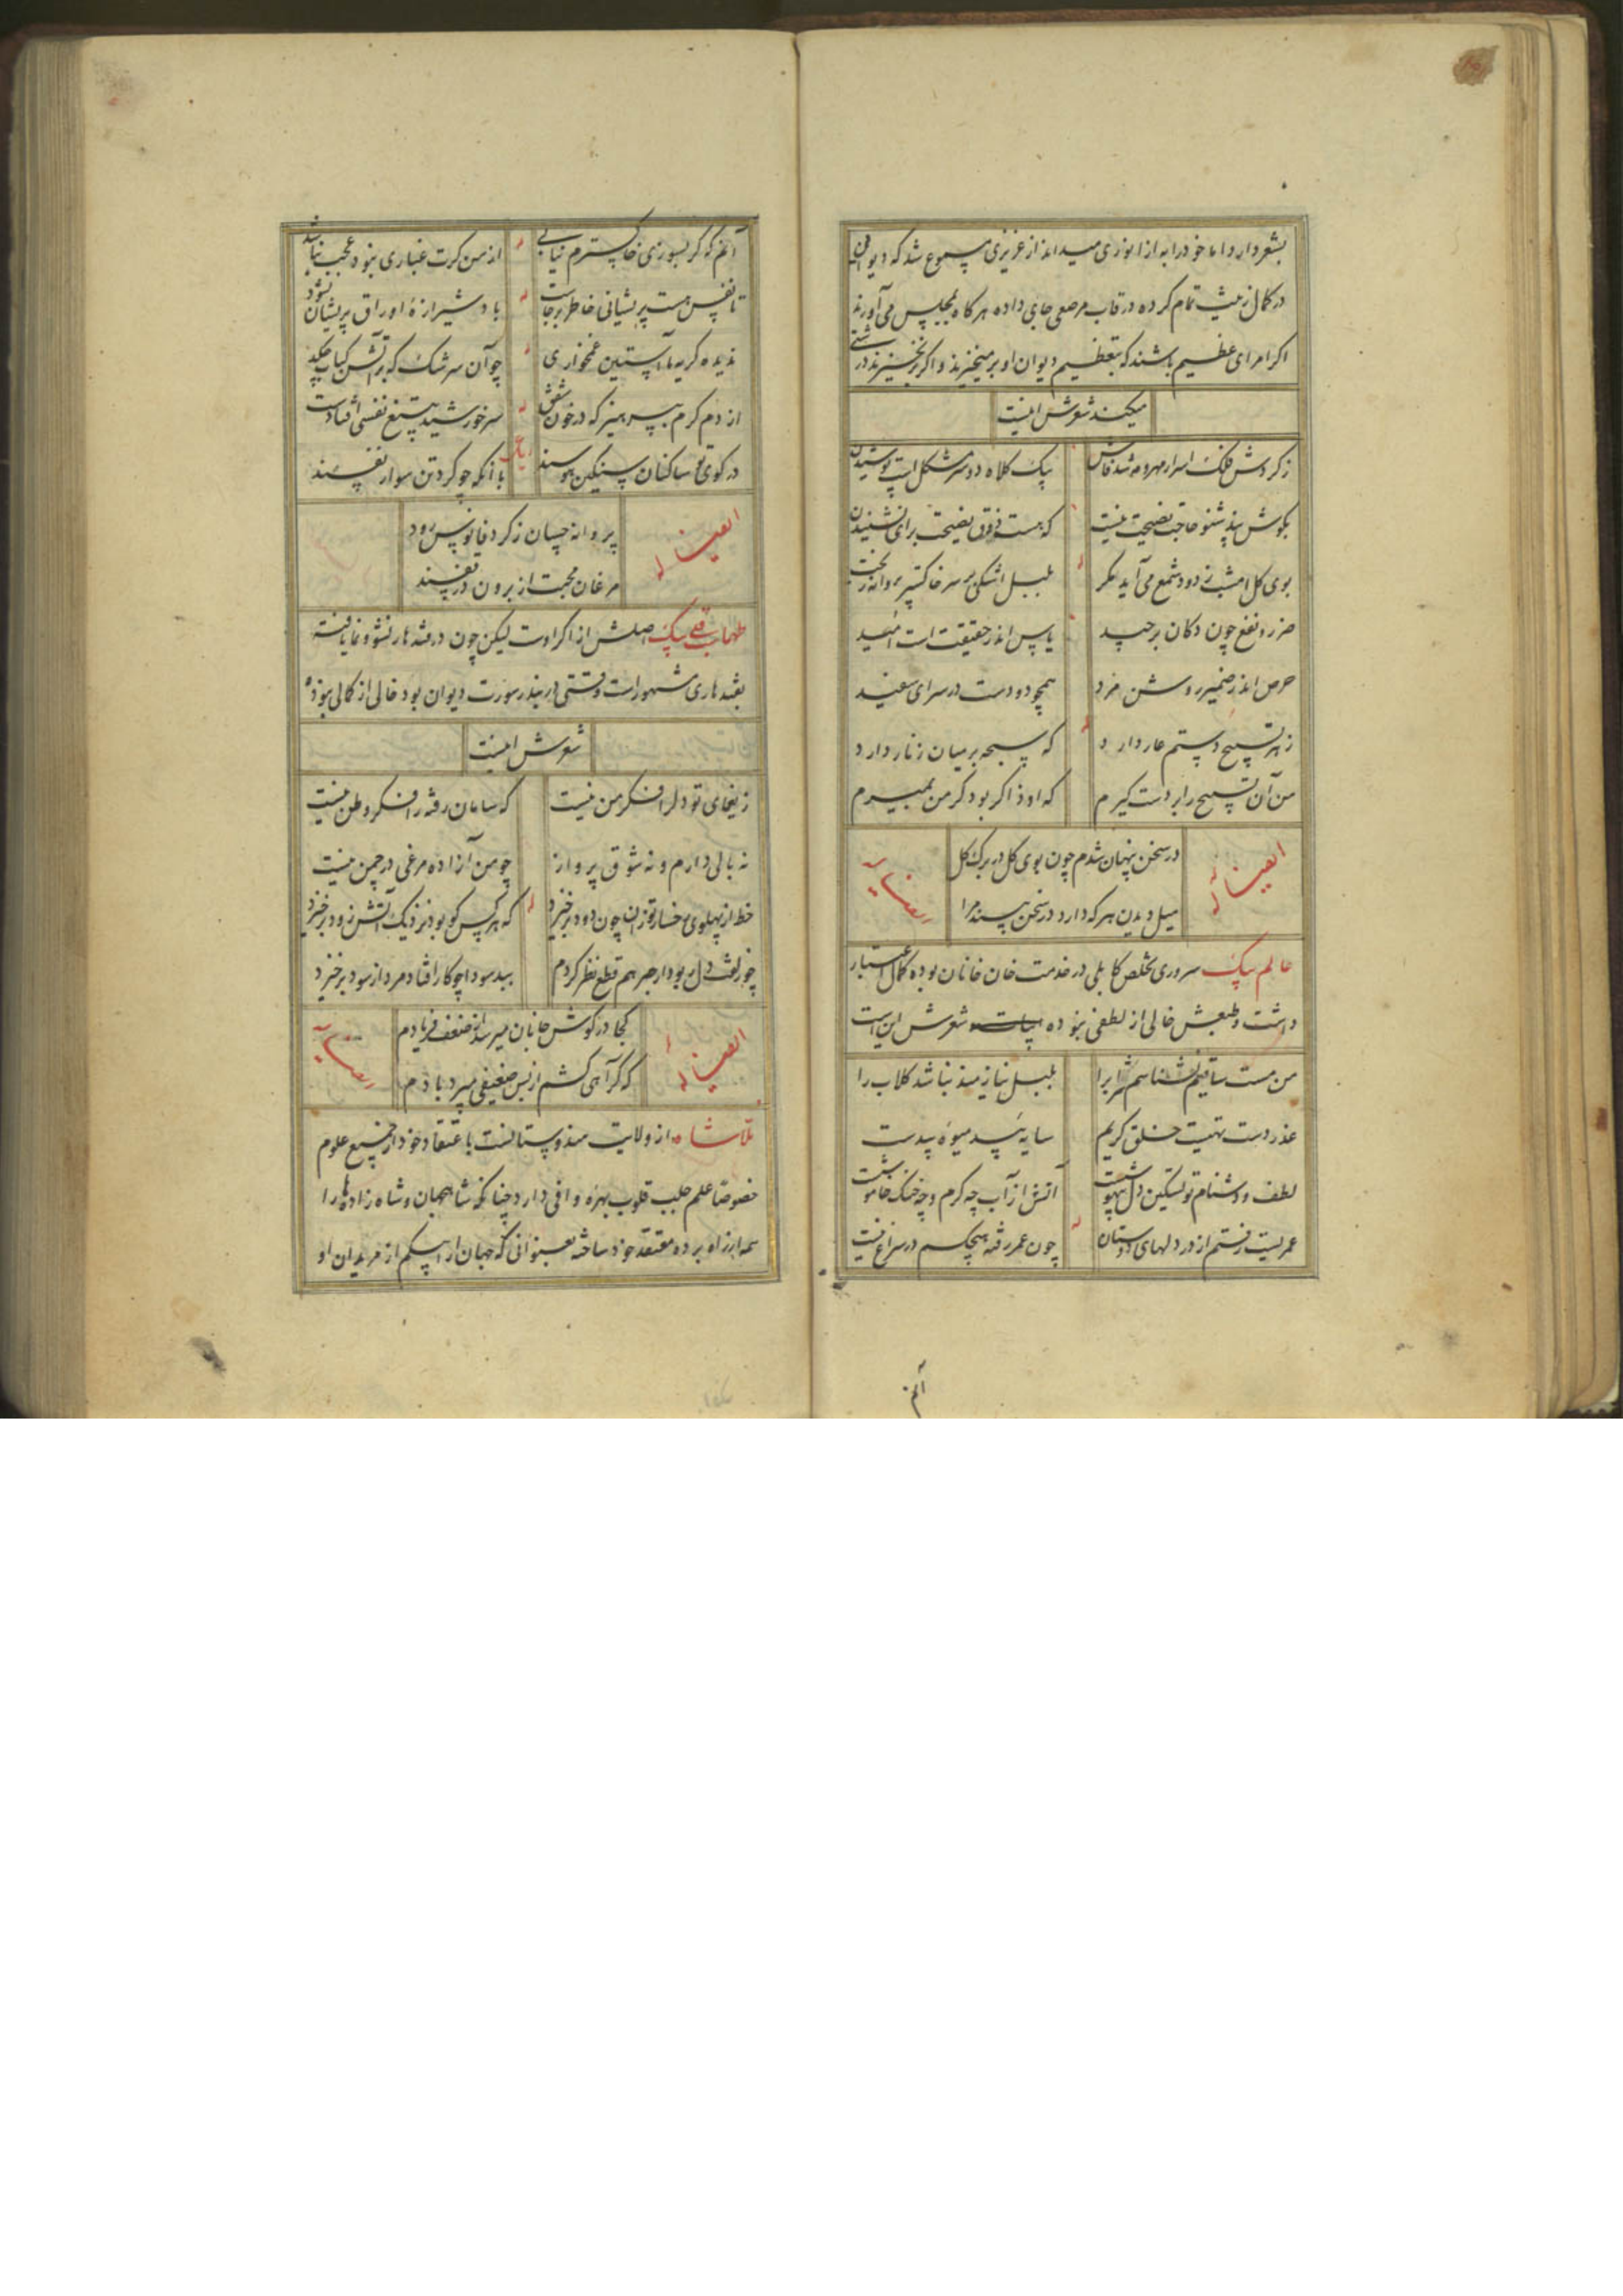 بشعر دارد اما خود را به از انوری میداند از عزیزی مسموع شد که دیوانش
در کمال زینت تمام کرده در قاب مرصعی جای داده هرگاه بمجلس می آورند
اگر امرای عظیم باشند که بتعظیم دیوان او برمیخیزند و اگر برنخیزند درشتی
میکند شعرش اینست
ز گردش فلک اسرار مهر و مه شد فاش بیک کلاه دو سر مشکل است پوشیدن
بگوش پند شنو حاجت نصیحت نیست که هست ذوق نصیحت برای نشنیدن
بوی گل امشب ز دود شمع می آید مگر بلبل اشکی بر سر خاکستر پروانه ریخت
ضرر و نفع چون دکان برچید یاس اندر حقیقت است امید
حرص اندر ضمیر روشن مرد همچو دودست در سرای سفید
ز هر تسبیح دستم عار دارد که سبحه بر میان زنار دارد
من آن تسبیح را بر دست گیرم که او ذاکر بود گر من بمیرم
ایضا له
در سخن پنهان شدم چون بوی گل در برگ گل
میل دیدن هر که دارد در سخن بیند مرا
عالم بیک سروری تخلص کابلی در خدمت خان خانان بوده کمال اعتبار
داشت و طبعش خالی از لطفی نبوده شعرش این است
من مست ساقیم نشناسم شراب را بلبل نیازمند نباشد گلاب را
عذر دست تهیست خلق کریم سایه بید میوه بیدست
لطف و دشنام تو تسکین دل آتش از آب چه گرم و چه خنک
عمریست رفتم از در دلهای دوستان چون عمر رفته هیچکسم در سراغ نیست
آنم
آنم که گر بسوزی خاکسترم نیابی از من گرت غباری نبود عجب نباشد
تا نفس هست پریشانی خاطر برجاست باد شیرازه اوراق پریشان نشود
ندیده گریه ما آستین غمخواری چو آن سرشک که بر آتش کباب چکد
از دم گرم بپرهیز که در خون شفق سر خورشید بتیغ نفسی افتادست
در کوی تو ساکنان سنگین هوسند با آنکه چو گردتن سوار نفسند
ایضا له
پروانه چسان ز گرد فانوس رود
مرغان محبت از برون در قفسند
طهماسب قلی بیک اصلش از اکراد است لیکن چون در قندهار نشو و نما یافته
بقندهاری مشهور است وقتی در بندر سورت دیوان بود خالی از کمالی نبوده
شعرش اینست
ز یغمای تو دل را فکر من نیست که سامان رفته را فکر وطن نیست
نه بالی دارم و نه شوق پرواز چو من آزاده مرغی در چمن نیست
خط از پهلوی رخسار تو زان چون دود برخیزد که هر کس کو بود نزدیک آتش زود برخیزد
چو زلفت دل ربود از چهر هم قطع نظر کردم ببد سودا چو کار افتاد مرد از سود برخیزد
ایضا له
کجا در گوش جانان میرسد از ضعف فریادم
که گر آهی کشم از بس ضعیفی میبرد بادم
ملا شاه از ولایت هندوستانست باعتقاد خود از جمیع علوم
خصوصا علم جلب قلوب بهره وافی دارد چنانکه شاهجهان و شاه زاده ها را
همه از راه برده معتقد خود ساخته بعنوانی که جهان ارا بیکم از مریدان او